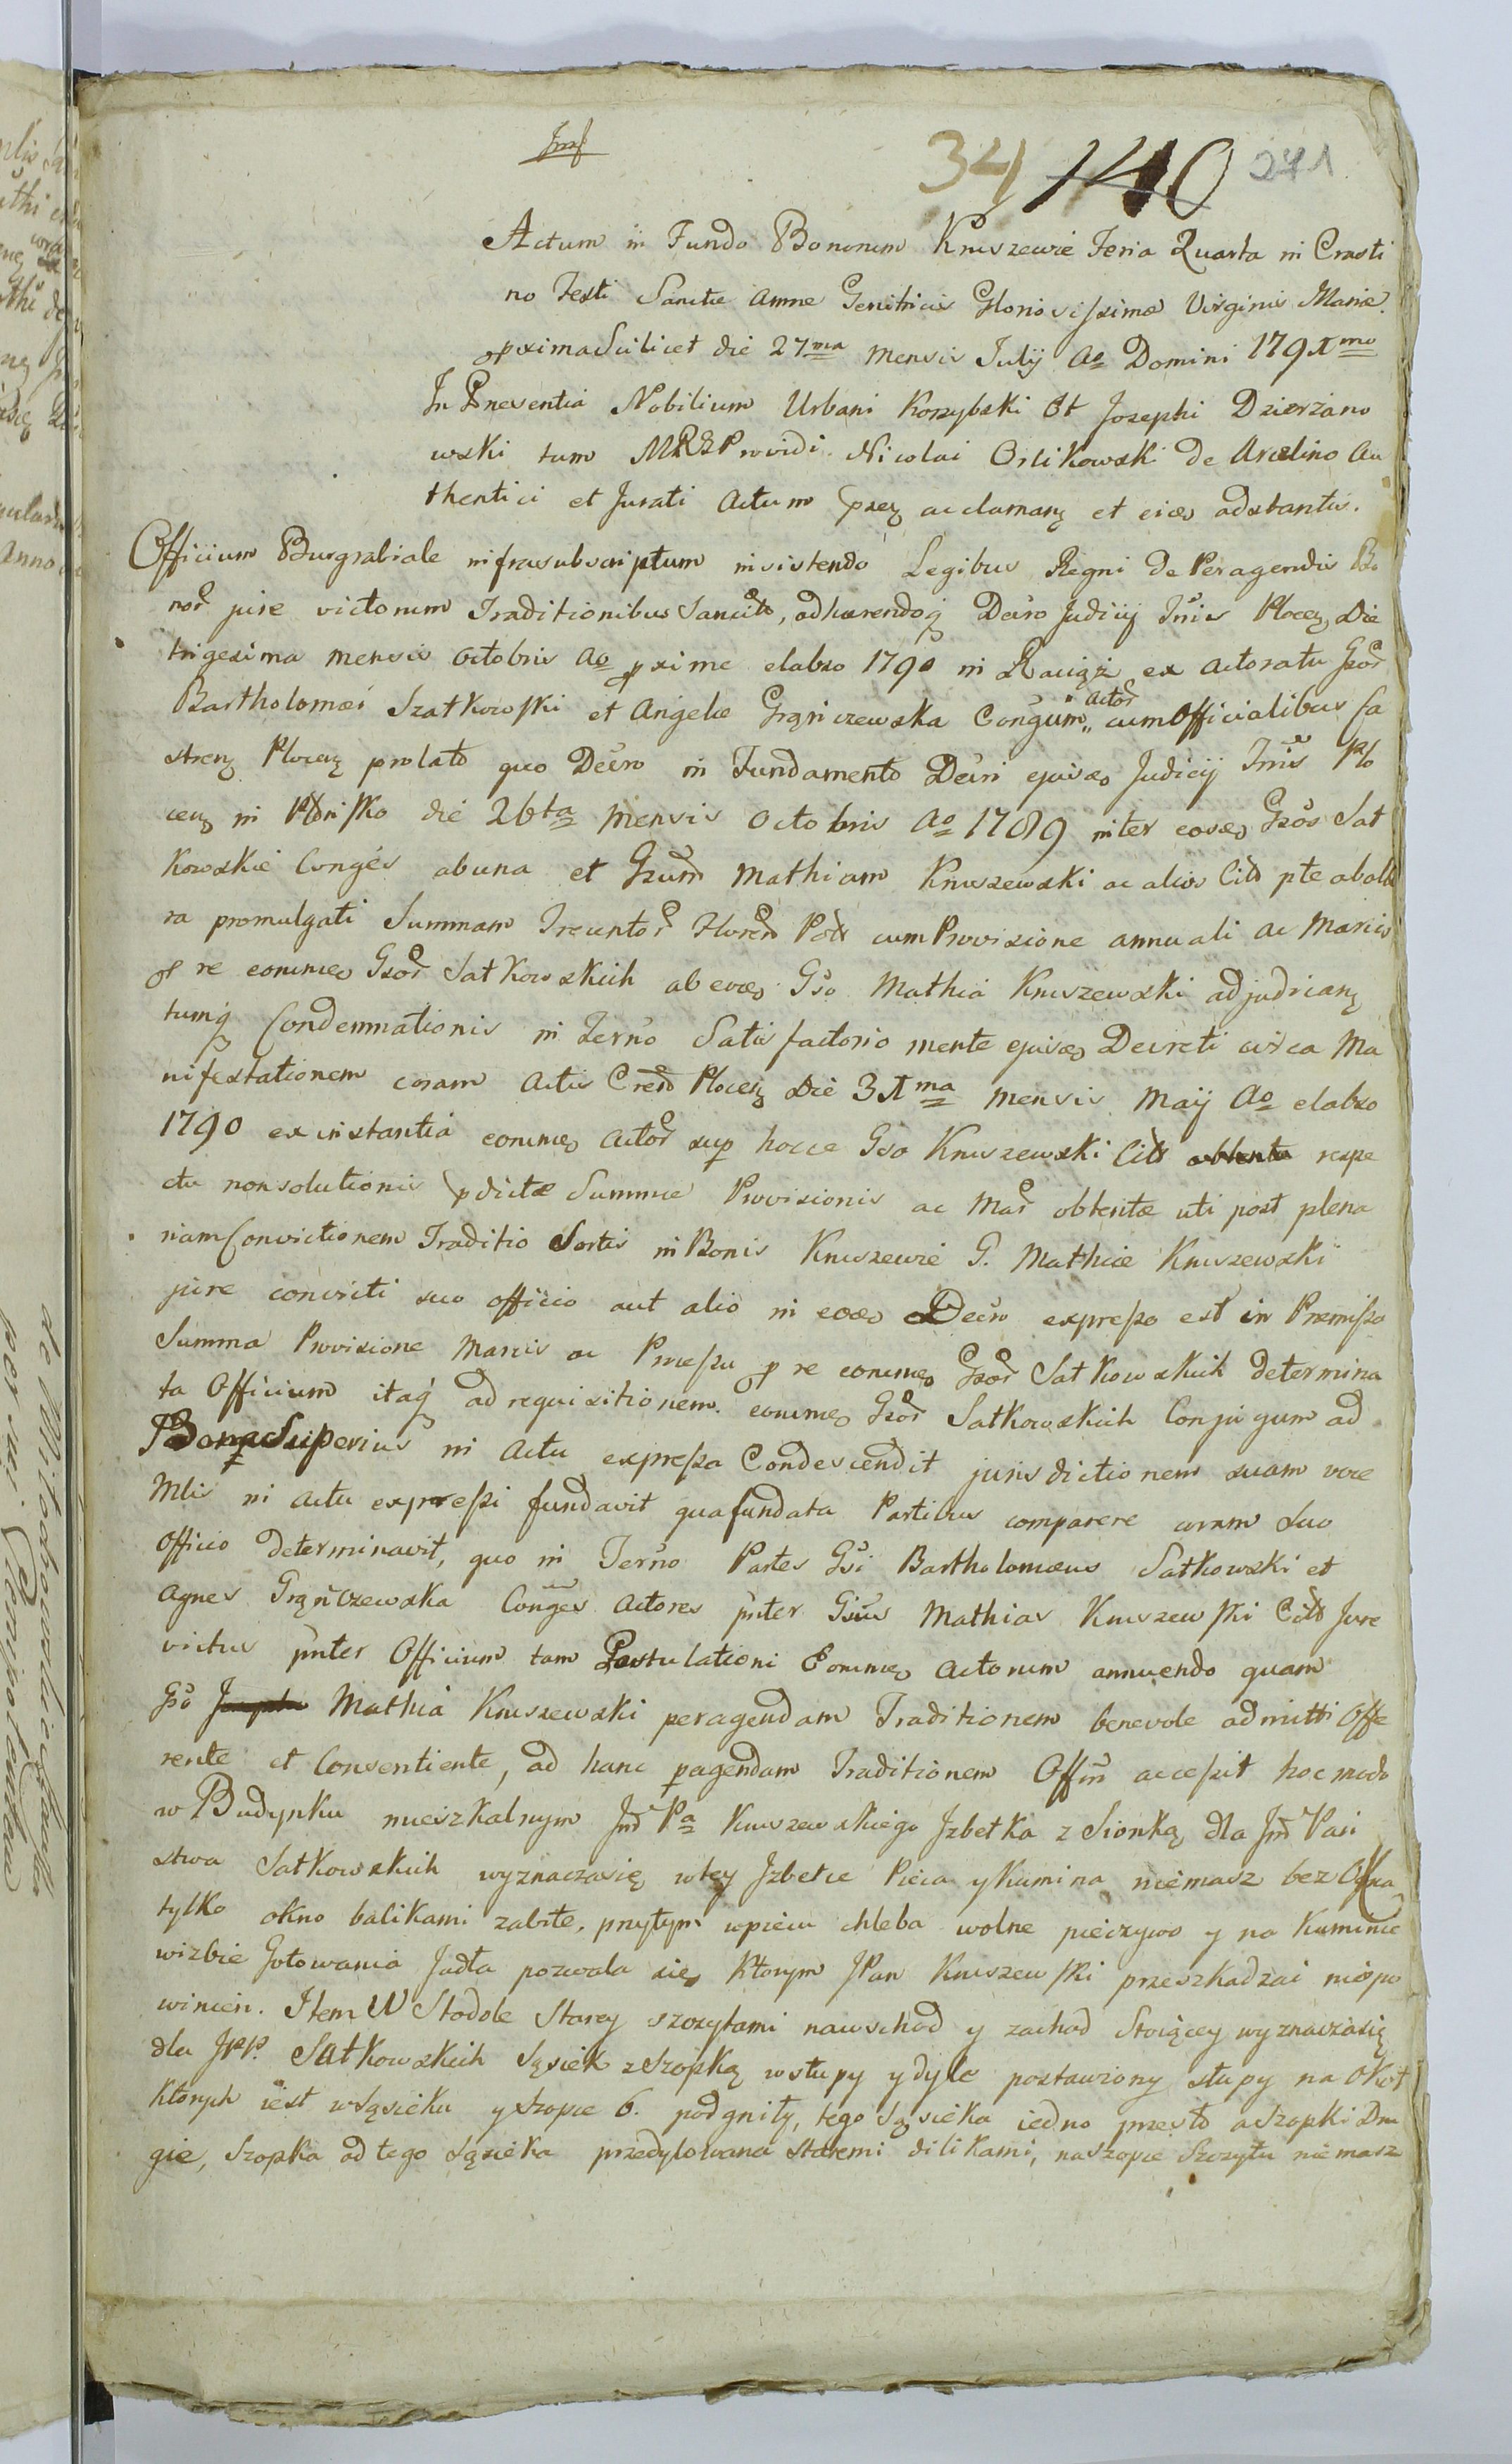 Jmf
34 140 271
Actum in Fundo Bonorum Kruszewie Feria Quarta in Crasti
no Festi Sanctæ Annæ Genitricis Gloriosissimæ Virginis Mariæ
pxima Scilicet die 27ma Mensis Julij Ao Domini 1791mo
In Presentia Nobilium Urbani Korzybski Et Josephi Dzierzano
wski tum Providi Nicolai Orlikowski de Arcelino Au
thentici et Jurati Actum prsz acclamanz et eidem adstantis.
Officium Burgrabiale infrasubscriptum insistendo Legibus Regni de Peragendis Bo
nor jure victorum Traditionibus Sancitis, adhærendoq Decro Judicij Tris Plocen Die
trigesima Mensis Octobris Ao pxime elabso 1790 in Raciąż ex Actoratu Gsor
Bartholomæi Szatkowski et Angelæ Grąniczewska Congum Actor cum Officialibus Ca
stren Plocen prolato quo Decro in Fundamento Decri ejusdem Judicij Tris Plo
cen in Płońsko die 26ta Mensis Octobris Ao 1789 inter eosdem Gsos Sat
kowskie Conges ab una et Gsum Mathiam Kruszewski ac alios Citt pte ab alte
ra promulgati Summam Trecentor Floren Pol cum Provisione annuali ac Marcis
p re eorumdem Gsor Satkowskich ab eodem Gso Mathia Kruszewski adjudicanz
tumq Condemnationis in Termo Satisfactorio mente ejusdem Decreti circa Ma
nifestationem coram Actis Cren Plocen Die 31ma Mensis Maij Ao elabso
1790 ex instantia eorumdem Actor sup hocce Gso Kruszewski Citt obtenta respe
ctu non solutionis pdictæ Summæ Provisionis ac Mar obtentæ uti post plena
riam Convictionem Traditio Sortis in Bonis Kruszewie G. Mathiæ Kruszewski
jure convicti suo officio aut alio in eodem Decro expresso est in Præmissa
Summa Provisione Marcis ac Processu p re eorumdem Gsor Satkowskich determina
ta Officium itaq ad requisitionem eorumdem Gsor Satkowskich Conjugum ad
Bona Superius in Actu expressa Condescendit jurisdictionem suam voce
Mlis in Actu expressi fundavit qua fundata Partibus comparere coram suo
Officio determinavit, quo in Termo Partes Gsi Bartholomæus Satkowski et
Agnes Grąniczewska Conges Actores pnter Gsus Mathias Kruszewski Citt Jure
victus pnter Officium tam Postulationi Eorumdem Actorum annuendo quam
Gso Josepho Mathia Kruszewski peragendam Traditionem benevole admitti Offe
rente et Consentiente, ad hanc pagendam Traditionem Offm accessit hoc modo
w Budynku mieszkalnym Jmć Pa Kruszewskiego Jzbetka z Sionką dla Jmć Pań
stwa Satkowskich wyznacza się w tey Jzbetce Pieca y kumina niemasz bez Okna
tylko okno balikami zabite, przytym w piecu chleba wolne pieczywo y na Kuminie
w izbie Gotowania Jadła pozwala się Ktorym JPan Kruszewski przeszkadzać niepo
winien. Item W Stodole Starey szczytami na wschod y zachod Stoiącey wyznacza się
dla JPP. Satkowskich Sąsiek z Szopką w słupy y dyle postawiony słupy na Okoł
Ktorych iest w Sąsieku y Szopce 6. podgniły, tego Sąsieka iedno przęsło a Szopki Dru
gie, Szopka od tego Sąsieka przedylowana staremi dilikami, na szopce Szczytu niemasz